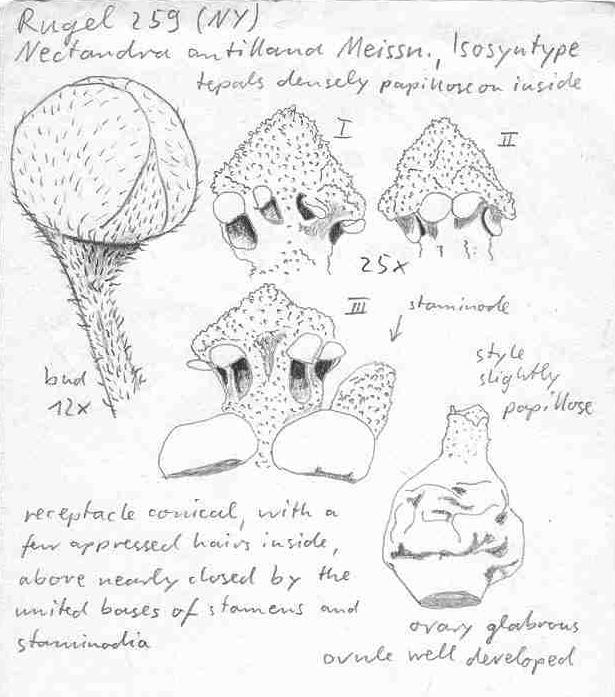 Rugel 259 (NY)
Nectandra antillana Meissn., Isosyntype
tepals densely papillose on inside
I
II
25x
III
staminode
bud
12x
style
slightly
papillose
receptacle conical, with a
few appressed hairs inside,
above nearly closed by the
united bases of stamens and
staminodia
ovary glabrous
ovule well developed